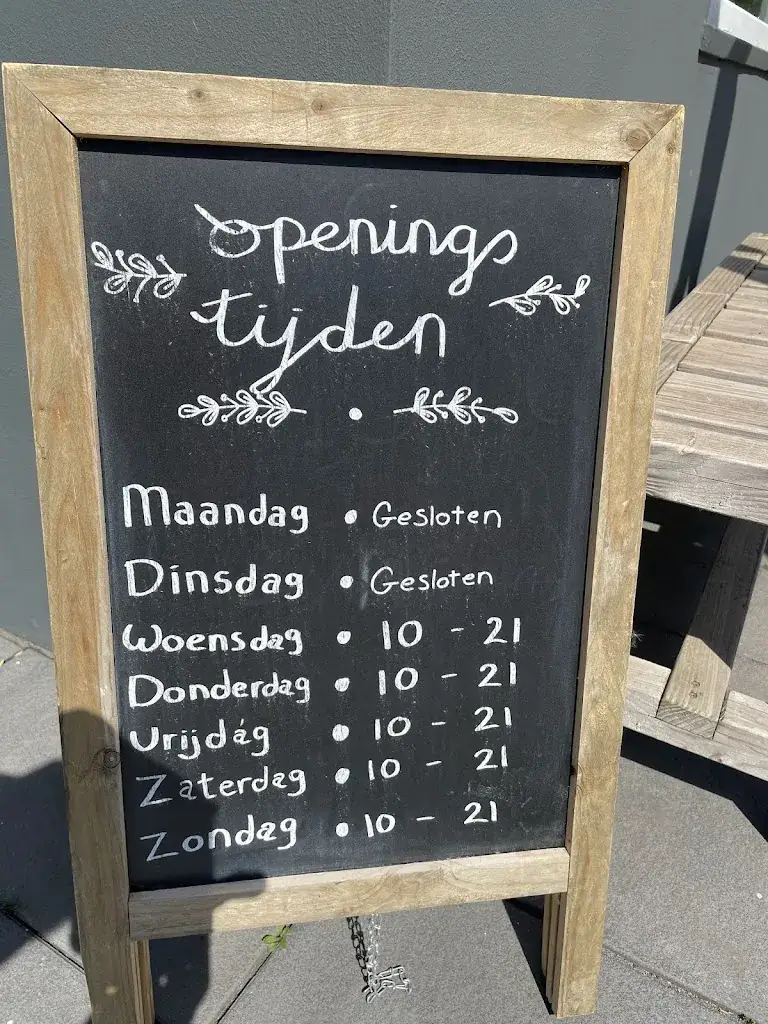 openings
tijden
Maandag • Gesloten
Dinsdag • Gesloten
Woensdag • 10 - 21
Donderdag • 10 - 21
Vrijdág • 10 - 21
Zaterdag • 10 - 21
Zondag • 10 - 21